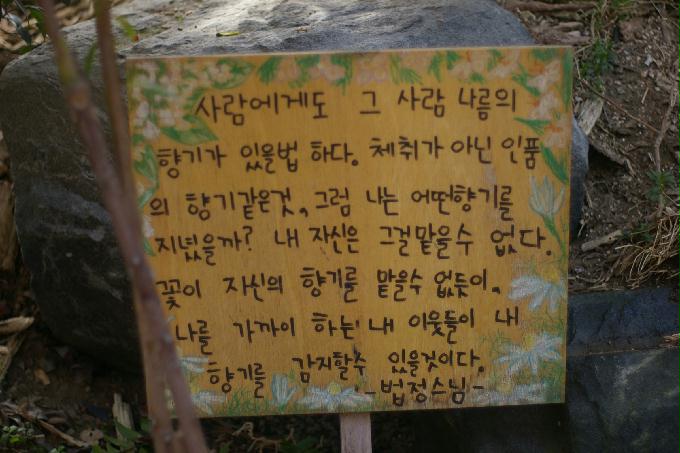 사람에게도 그 사람 나름의
향기가 있을법 하다. 체취가 아닌 인품
의 향기같은것, 그럼 나는 어떤향기를
지녔을까? 내 자신은 그걸맡을수 없다.
꽃이 자신의 향기를 맡을수 없듯이.
나를 가까이 하는 내 이웃들이 내
향기를 감지할수 있을것이다.
- 법정스님 -